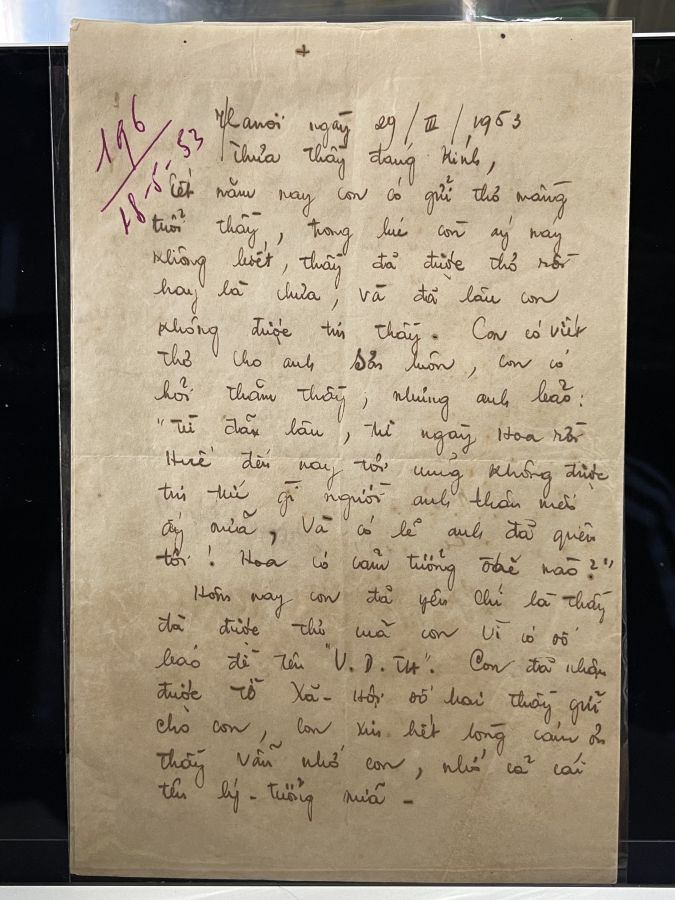 196
18-5-53
Hanoi ngày 29/III/1953
Thưa thầy đáng kính,
Tết năm nay con có gửi thơ mầng
tuổi thầy, trong lúc con ấy nay
không biết, thầy đả được thơ rồi
hay là chưa, và đả lâu con
không được tin thầy. Con có viết
thơ cho anh luôn, con có
hỏi thăm thầy, nhưng anh bảo:
"Từ đấn lâu, từ ngày Hoa rời
Huế đến nay tôi cũng không được
tin tức gì người anh thân mến
ấy nửa, Và có lẽ anh đả quên
tôi! Hoa có cảm tưởng thế nào?"
Hôm nay con đả yên chí là thầy
đả được thơ mà con vì có số
báo đề tên "V.D.TH". Con đả nhận
được tờ Xã-Hội số hai thầy gửi
cho con, con xin hết lòng cám ơn
thầy vẫn nhớ con, nhớ cả cái
tên lý-tưởng nửa -